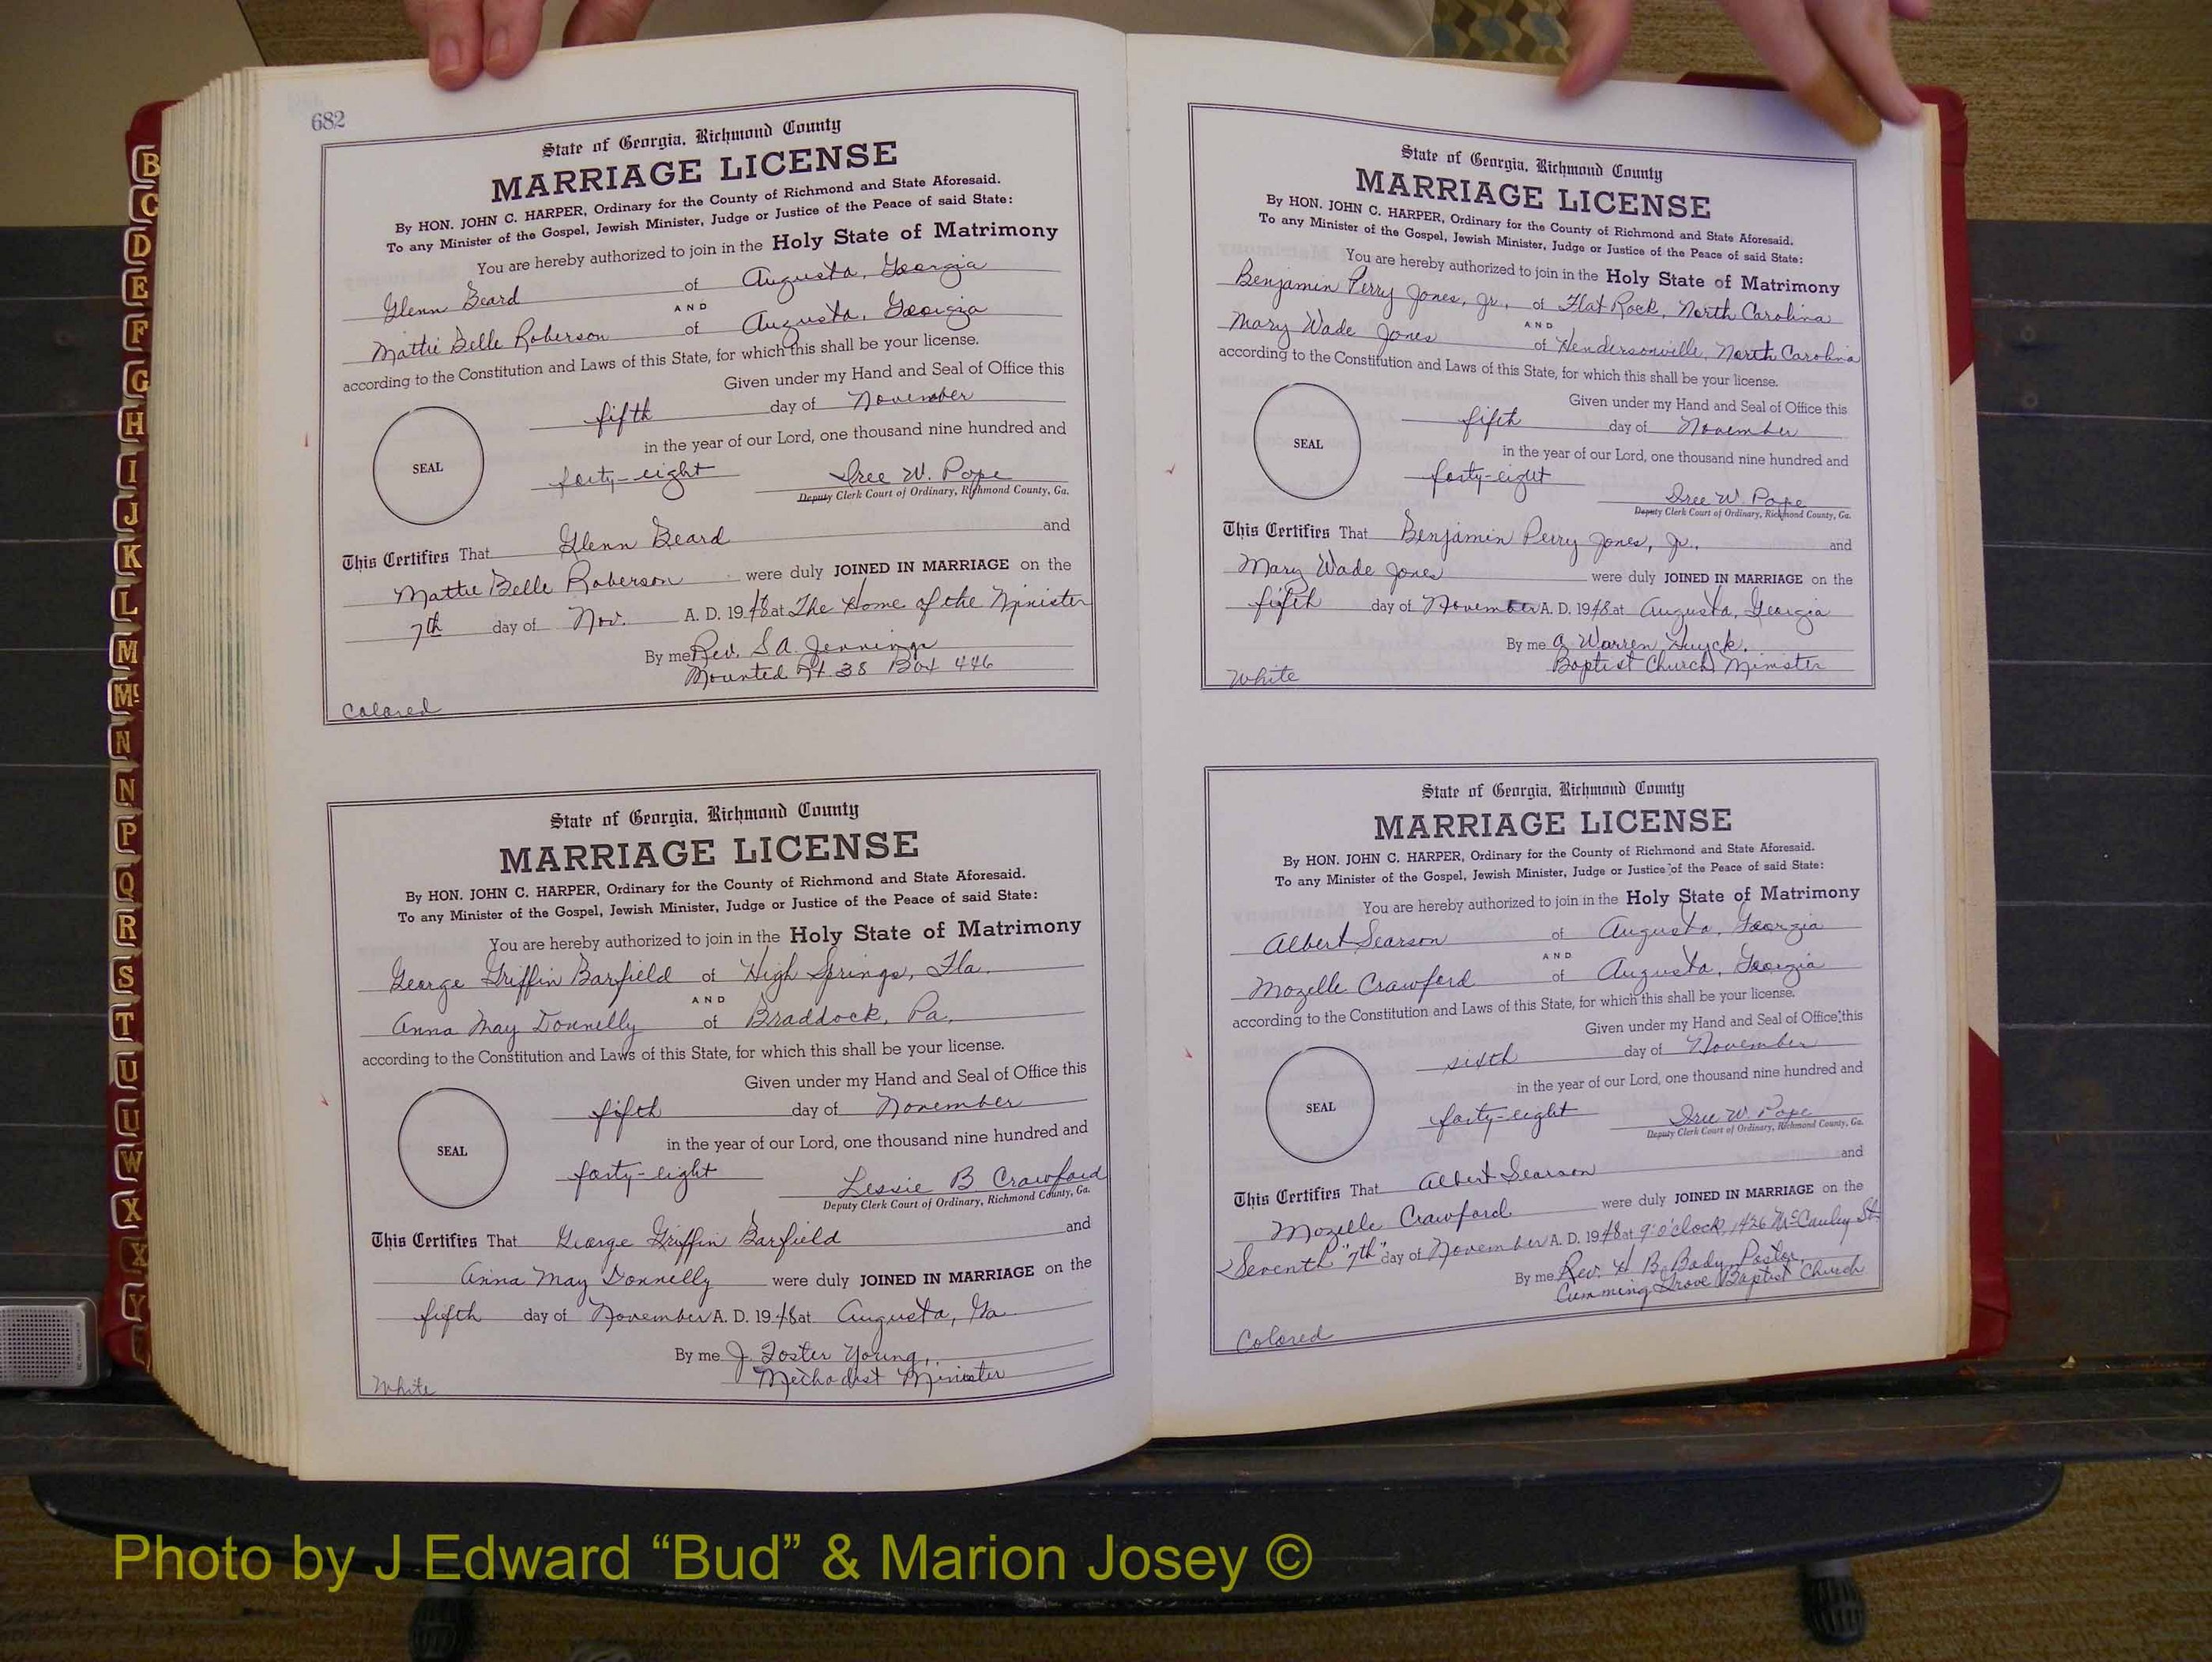 682
State of Georgia, Richmond County
MARRIAGE LICENSE
By HON. JOHN C. HARPER, Ordinary for the County of Richmond and State Aforesaid.
To any Minister of the Gospel, Jewish Minister, Judge or Justice of the Peace of said State:
You are hereby authorized to join in the Holy State of Matrimony
Glenn Beard of Augusta, Georgia
AND
Mattie Belle Roberson of Augusta, Georgia
according to the Constitution and Laws of this State, for which this shall be your license.
Given under my Hand and Seal of Office this
fifth day of November
in the year of our Lord, one thousand nine hundred and
SEAL
forty-eight W. Pope
Deputy Clerk Court of Ordinary, Richmond County, Ga.
This Certifies That Glenn Beard and
Mattie Belle Roberson were duly JOINED IN MARRIAGE on the
7th day of Nov. A. D. 1948 at The Home of the Minister
By me Rev. S.A. Jennings
Mounted Rt. 38 Box 446
Colored
State of Georgia, Richmond County
MARRIAGE LICENSE
By HON. JOHN C. HARPER, Ordinary for the County of Richmond and State Aforesaid.
To any Minister of the Gospel, Jewish Minister, Judge or Justice of the Peace of said State:
You are hereby authorized to join in the Holy State of Matrimony
George Griffin Barfield of High Springs, Fla.
AND
Anna May Donnelly of Braddock, Pa.
according to the Constitution and Laws of this State, for which this shall be your license.
Given under my Hand and Seal of Office this
fifth day of November
in the year of our Lord, one thousand nine hundred and
SEAL
forty-eight Lessie B Crawford
Deputy Clerk Court of Ordinary, Richmond County, Ga.
This Certifies That George Griffin Barfield and
Anna May Donnelly were duly JOINED IN MARRIAGE on the
fifth day of November A. D. 1948 at Augusta, Ga.
By me J. Foster Young,
Methodist Minister
White
State of Georgia, Richmond County
MARRIAGE LICENSE
By HON. JOHN C. HARPER, Ordinary for the County of Richmond and State Aforesaid.
To any Minister of the Gospel, Jewish Minister, Judge or Justice of the Peace of said State:
You are hereby authorized to join in the Holy State of Matrimony
Benjamin Perry Jones, Jr., of Flat Rock, North Carolina
AND
Mary Wade Jones of Hendersonville, North Carolina
according to the Constitution and Laws of this State, for which this shall be your license.
Given under my Hand and Seal of Office this
fifth day of November
in the year of our Lord, one thousand nine hundred and
SEAL
forty-eight W. Pope
Deputy Clerk Court of Ordinary, Richmond County, Ga.
This Certifies That Benjamin Perry Jones, Jr., and
Mary Wade Jones were duly JOINED IN MARRIAGE on the
fifth day of November A. D. 1948 at Augusta, Georgia
By me A. Warren Huyck,
Baptist Church Minister
White
State of Georgia, Richmond County
MARRIAGE LICENSE
By HON. JOHN C. HARPER, Ordinary for the County of Richmond and State Aforesaid.
To any Minister of the Gospel, Jewish Minister, Judge or Justice of the Peace of said State:
You are hereby authorized to join in the Holy State of Matrimony
Albert Searson of Augusta, Georgia
AND
Mozelle Crawford of Augusta, Georgia
according to the Constitution and Laws of this State, for which this shall be your license.
Given under my Hand and Seal of Office this
sixth day of November
in the year of our Lord, one thousand nine hundred and
SEAL
forty-eight W. Pope
Deputy Clerk Court of Ordinary, Richmond County, Ga.
This Certifies That Albert Searson and
Mozelle Crawford were duly JOINED IN MARRIAGE on the
Seventh "7th" day of November A. D. 1948 at 9 o'clock, 1426 McCauley St
By me Rev. H. B. Body, Pastor,
Cumming Grove Baptist Church
Colored
B
C
D
E
F
G
H
I
J
K
L
M
Mc
N
N
P
Q
R
S
T
U
U
W
X
X
Y
Photo by J Edward “Bud” & Marion Josey ©